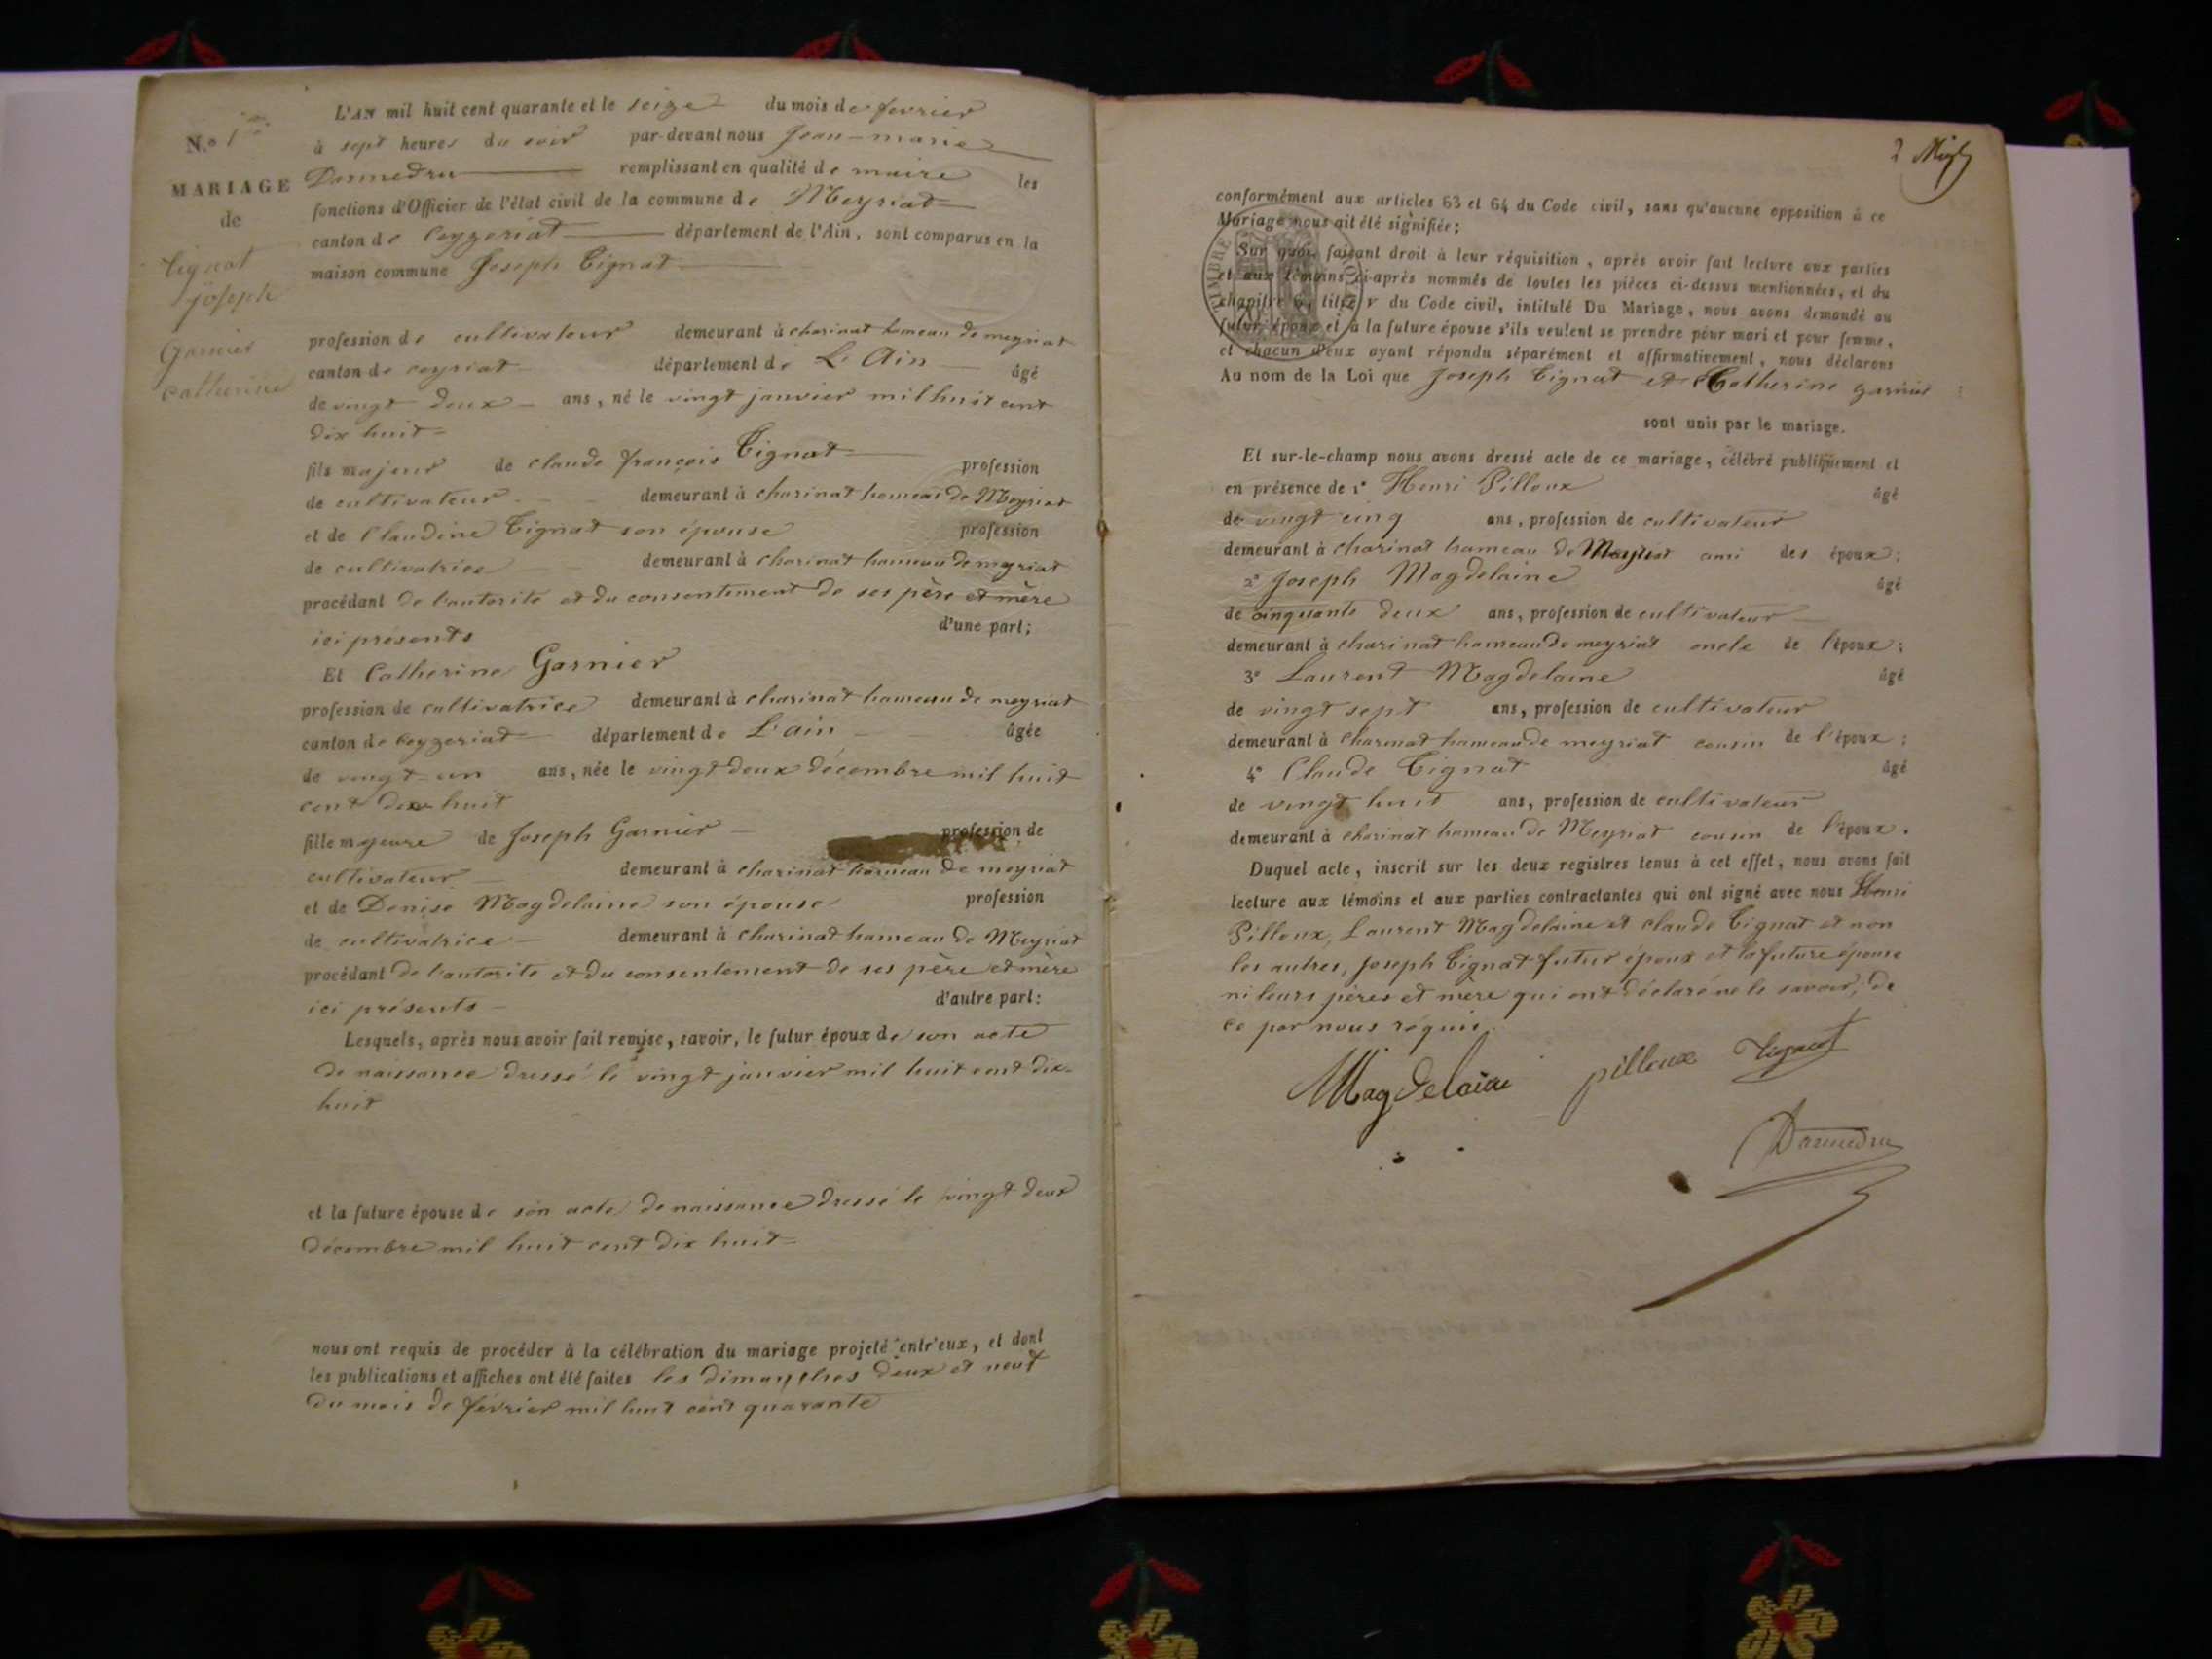 N.o 1er
MARIAGE
de
Tignat
joseph
Garnier
catherine
L'AN mil huit cent quarante et le seize du mois de fevrier
à sept heures du soir par-devant nous Jean-marie
Darmedru remplissant en qualité de maire les
fonctions d'Officier de l'état civil de la commune de Meyriat
canton de Ceyzeriat département de l'Ain, sont comparus en la
maison commune Joseph Tignat
profession de cultivateur demeurant à charinat hameau de meyriat
canton de ceyriat département de L'Ain âgé
de vingt deux ans, né le vingt janvier mil huit cent
dix huit
fils majeur de claude françois Tignat profession
de cultivateur demeurant à charinat hameau de Meyriat
et de Claudine Tignat son épouse profession
de cultivatrice demeurant à charinat hameau de meyriat
procédant de l'autorité et du consentement de ses père et mère
ici présents d'une part;
Et Catherine Garnier
profession de cultivatrice demeurant à charinat hameau de meyriat
canton de Ceyzeriat département de L'ain âgée
de vingt un ans, née le vingt deux décembre mil huit
cent dix huit
fille majeure de Joseph Garnier profession de
cultivateur demeurant à charinat hameau de meyriat
et de Denise Magdelaine son épouse profession
de cultivatrice demeurant à charinat hameau de Meyriat
procédant de l'autorité et du consentement de ses père et mère
ici présents d'autre part:
Lesquels, après nous avoir fait remise, savoir, le futur époux de son acte
de naissance dressé le vingt janvier mil huit cent dix-
huit
et la future épouse de son acte de naissance dressé le vingt deux
décembre mil huit cent dix huit
nous ont requis de procéder à la célébration du mariage projeté entr'eux, et dont
les publications et affiches ont été faites les dimanches deux et neuf
du mois de février mil huit cent quarante
2
conformément aux articles 63 et 64 du Code civil, sans qu'aucune opposition à ce
Mariage nous ait été signifiée;
TIMBRE ROYAL
Sur quoi, faisant droit à leur réquisition, après avoir fait lecture aux parties
et aux témoins ci-après nommés de toutes les pièces ci-dessus mentionnées, et du
chapitre 6, titre v du Code civil, intitulé Du Mariage, nous avons demandé au
futur époux et à la future épouse s'ils veulent se prendre pour mari et pour femme,
et chacun d'eux ayant répondu séparément et affirmativement, nous déclarons
Au nom de la Loi que Joseph Tignat et Catherine garnier
sont unis par le mariage.
Et sur-le-champ nous avons dressé acte de ce mariage, célébré publiquement et
en présence de 1º Henri Pilloux âgé
de vingt cinq ans, profession de cultivateur
demeurant à charinat hameau de Meyriat ami des époux;
2º Joseph Magdelaine âgé
de cinquante deux ans, profession de cultivateur
demeurant à charinat hameau de meyriat oncle de l'époux;
3º Laurent Magdelaine âgé
de vingt sept ans, profession de cultivateur
demeurant à charinat hameau de meyriat cousin de l'époux;
4º Claude Tignat âgé
de vingt huit ans, profession de cultivateur
demeurant à charinat hameau de Meyriat cousin de l'époux.
Duquel acte, inscrit sur les deux registres tenus à cet effet, nous avons fait
lecture aux témoins et aux parties contractantes qui ont signé avec nous Henri
Pilloux, Laurent Magdelaine et claude Tignat et non
les autres, Joseph Tignat futur époux et la future épouse
ni leurs pères et mère qui ont déclaré ne le savoir, de
ce par nous requis.
Magdelaine pilloux tignat
Darmedru